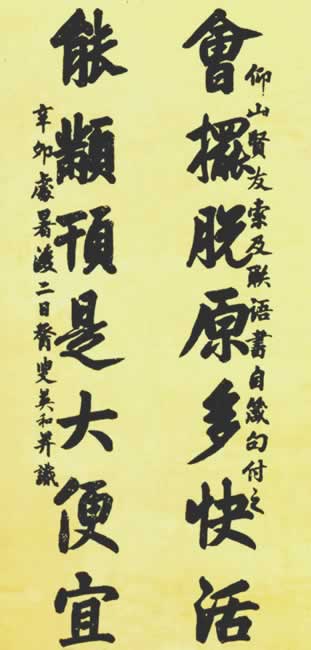 仰山賢友索及聯語書自箴句付之
會擺脫原多快活
能顢頇是大便宜
辛卯處暑後二日叟英和并識